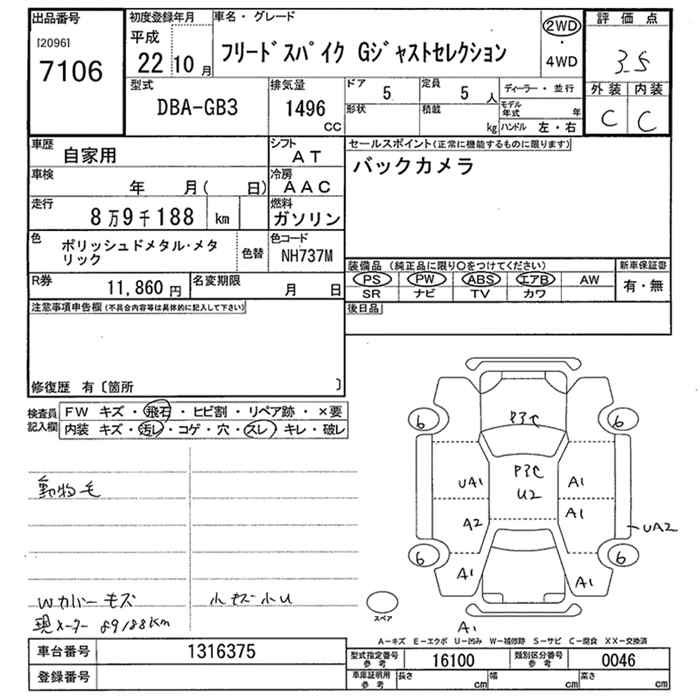 出品番号
[2096]
7106
初度登録年月
平成
22 10 月
車名・グレード
フリードスパイク Gジャストセレクション
2WD
・
4WD
評価点
3.5
外装 内装
C C
型式
DBA-GB3
排気量
1496
CC
ドア
5
定員
5 人
形状
積載
kg
ディーラー・並行
モデル年式 年
ハンドル 左・右
車歴
自家用
シフト
AT
車検
年 月( 日)
冷房
AAC
走行
8万9千188 km
燃料
ガソリン
色
ポリッシュドメタル・メタリック
色替
色コード
NH737M
R券
11,860 円
名変期限
月 日
セールスポイント(正常に機能するものに限ります)
バックカメラ
装備品 (純正品に限り○をつけてください)
PS PW ABS エアB AW
SR ナビ TV カワ
新車保証書
有・無
後日品
注意事項申告欄(不具合内容等は具体的に記入して下さい)
修復歴 有〔箇所 〕
検査員記入欄
FW キズ・飛石・ヒビ割・リペア跡・×要
内装 キズ・汚レ・コゲ・穴・スレ・キレ・破レ
動物毛
Wカバーキズ
小キズ小U
現メーター 89188Km
6 6
P3C
P3C
U2
UA1 A1
A2 A1
UA2
6 6
A1 A1
A1
スペア
A-キズ E-エクボ U-凹み W-補修跡 S-サビ C-腐食 XX-交換済
車台番号
1316375
登録番号
型式指定番号
参考
16100
類別区分番号
参考
0046
車庫証明用
参考
長さ cm
幅 cm
高さ cm